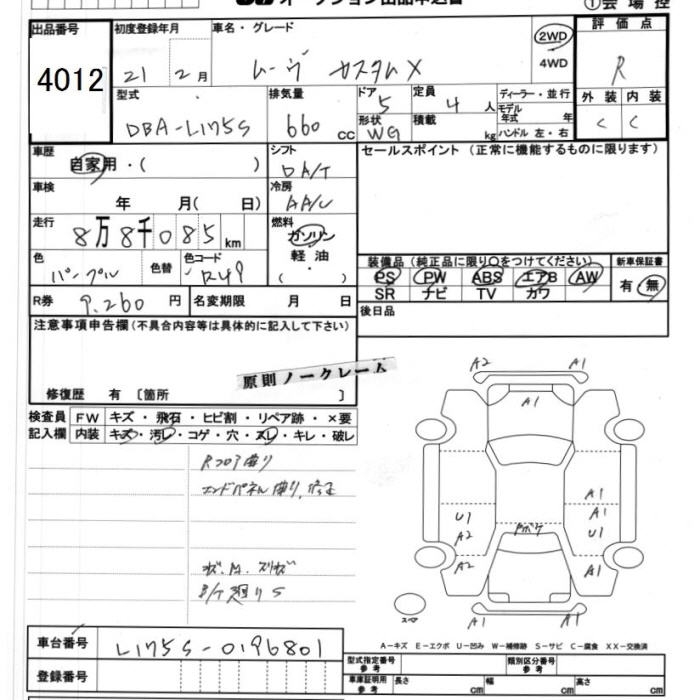 オークション出品申込書
①会場控
出品番号
4012
初度登録年月
21 2月
車名・グレード
ムーヴ カスタムX
2WD
4WD
評価点
R
型式
DBA-L175S
排気量
660 cc
ドア 5
形状 WG
定員 4人
積載 kg
ディーラー・並行
モデル年式 年
ハンドル 左・右
外装 内装
C C
車歴
自家用・( )
シフト
DA/T
セールスポイント(正常に機能するものに限ります)
車検
年 月( 日)
冷房
AAC
走行
8万8千085km
燃料
ガソリン
軽油・
( )
色
パープル
色替
色コード
R49
装備品(純正品に限り○をつけてください)
PS PW ABS エアB AW
SR ナビ TV カワ
新車保証書
有・無
R券 9,260円
名変期限 月 日
後日品
注意事項申告欄(不具合内容等は具体的に記入して下さい)
原則ノークレーム
修復歴 有〔箇所 〕
検査員記入欄
FW キズ・飛石・ヒビ割・リペア跡・×要
内装 キズ・汚レ・コゲ・穴・スレ・キレ・破レ
Rフロア曲り
エンドパネル曲り、修正
A2 A1
A1
A1
U1 A1
A2 U1
A2 A1
A1 A1
スペア
A-キズ E-エクボ U-凹み W-補修跡 S-サビ C-腐食 XX-交換済
車台番号
L175S-0196801
登録番号
型式指定番号 参考
類別区分番号 参考
車庫証明用 参考
長さ cm
幅 cm
高さ cm